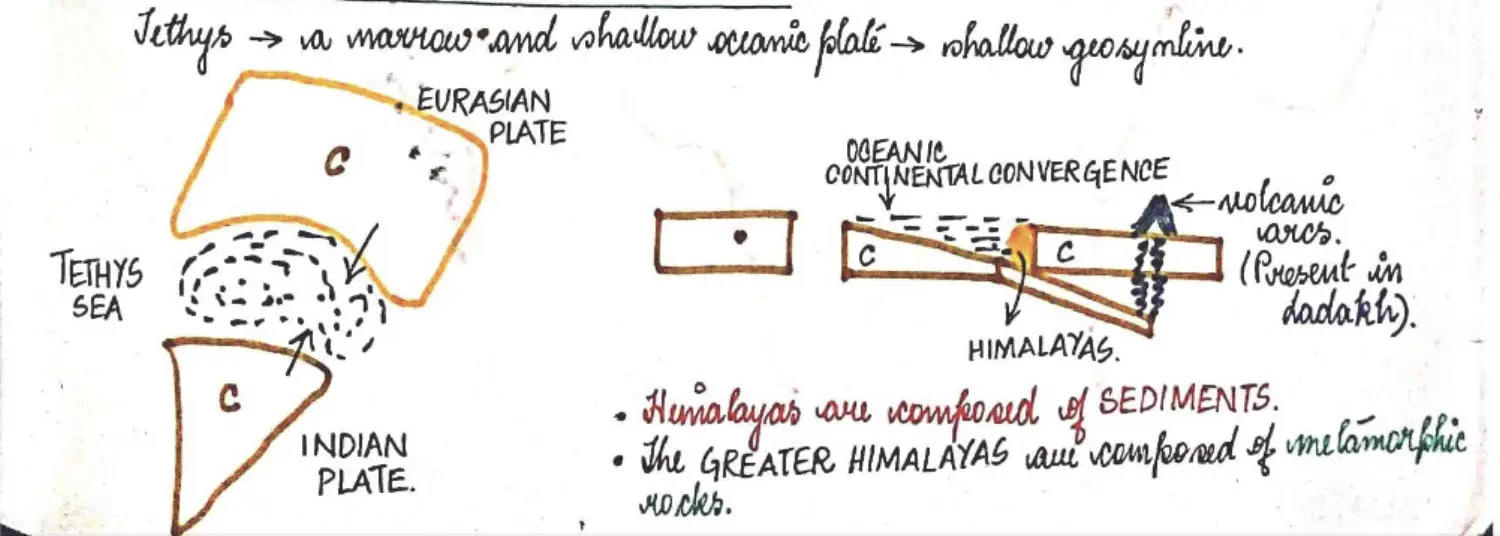 Tethys → a narrow and shallow oceanic plate → shallow geosynline.
EURASIAN
PLATE
C
TETHYS
SEA
C
INDIAN
PLATE.
OCEANIC
CONTINENTAL CONVERGENCE
C
C
volcanic
arcs.
(Present in
Ladakh).
HIMALAYAS.
• Himalayas are composed of SEDIMENTS.
• The GREATER HIMALAYAS are composed of metamorphic
rocks.